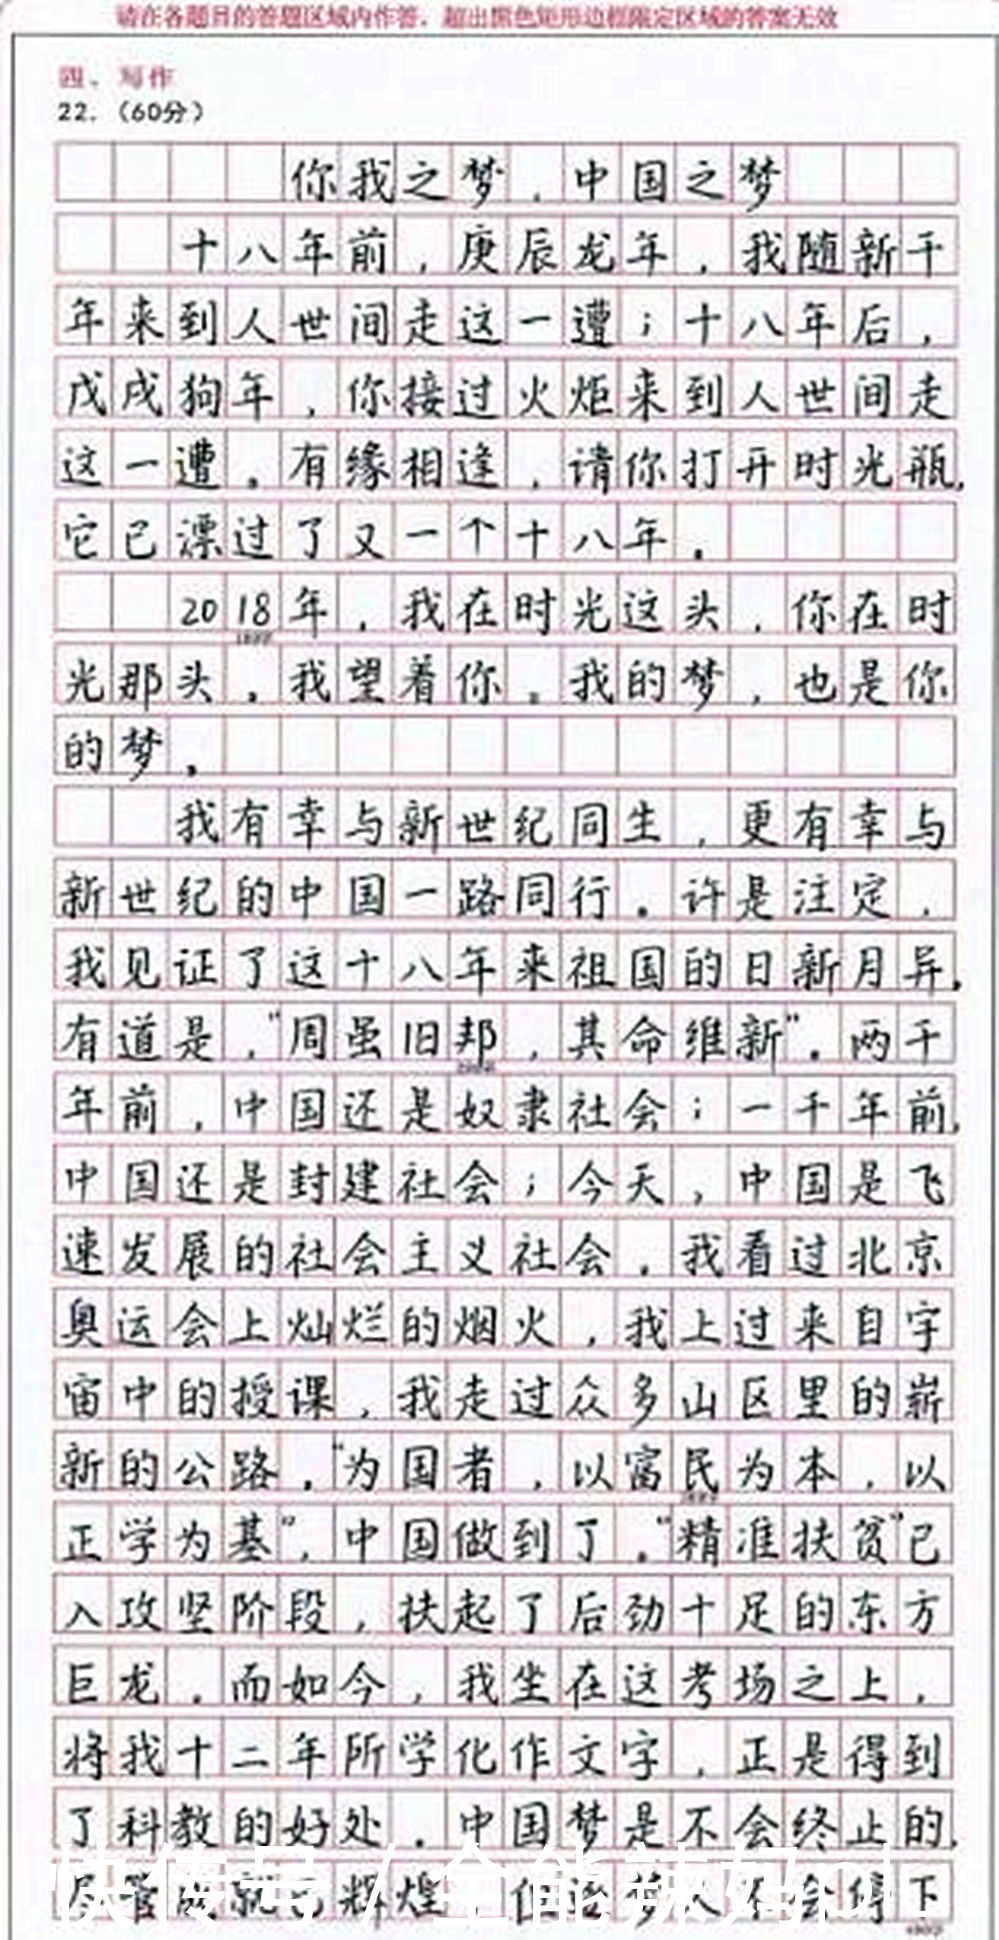 请在各题目的答题区域内作答，超出黑色矩形边框限定区域的答案无效
四、写作
22.（60分）
你我之梦，中国之梦
十八年前，庚辰龙年，我随新千
年来到人世间走这一遭；十八年后，
戊戌狗年，你接过火炬来到人世间走
这一遭。有缘相逢，请你打开时光瓶，
它已漂过了又一个十八年。
2018年，我在时光这头，你在时
光那头。我望着你。我的梦，也是你
的梦。
我有幸与新世纪同生，更有幸与
新世纪的中国一路同行。许是注定，
我见证了这十八年来祖国的日新月异。
有道是，“周虽旧邦，其命维新”。两千
年前，中国还是奴隶社会；一千年前，
中国还是封建社会；今天，中国是飞
速发展的社会主义社会。我看过北京
奥运会上灿烂的烟火，我上过来自宇
宙中的授课，我走过众多山区里的崭
新的公路。“为国者，以富民为本，以
正学为基”，中国做到了。“精准扶贫”已
入攻坚阶段，扶起了后劲十足的东方
巨龙。而如今，我坐在这考场之上，
将我十二年所学化作文字，正是得到
了科教的好处。中国梦是不会终止的，
尽管成就已辉煌 但 不会停下
快传号/全能辣妈pls